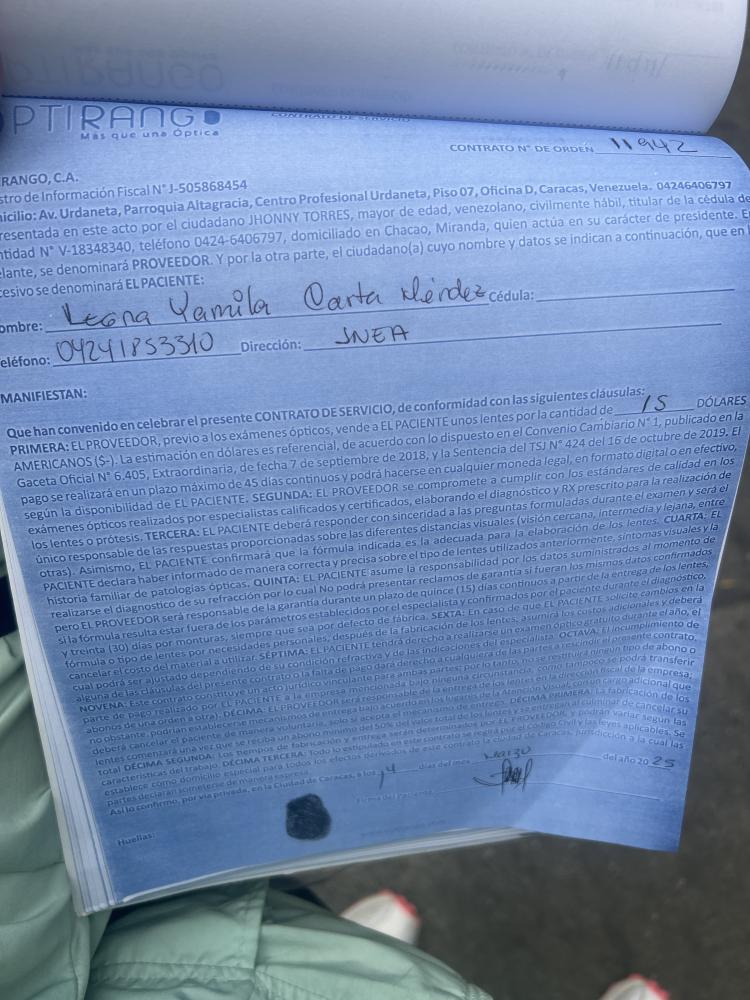 PTIRANGO
Más que una Óptica
CONTRATO DE SERVICIO
CONTRATO N° DE ORDEN 11942
RANGO, C.A.
stro de Información Fiscal N° J-505868454
icilio: Av. Urdaneta, Parroquia Altagracia, Centro Profesional Urdaneta, Piso 07, Oficina D, Caracas, Venezuela. 04246406797
resentada en este acto por el ciudadano JHONNY TORRES, mayor de edad, venezolano, civilmente hábil, titular de la cédula de
ntidad N° V-18348340, teléfono 0424-6406797, domiciliado en Chacao, Miranda, quien actúa en su carácter de presidente. E
elante, se denominará PROVEEDOR. Y por la otra parte, el ciudadano(a) cuyo nombre y datos se indican a continuación, que en l
cesivo se denominará EL PACIENTE:
ombre: Yamila Méndez Cédula:
eléfono: 04241853310 Dirección: INEA
MANIFIESTAN:
Que han convenido en celebrar el presente CONTRATO DE SERVICIO, de conformidad con las siguientes cláusulas:
PRIMERA: EL PROVEEDOR, previo a los exámenes ópticos, vende a EL PACIENTE unos lentes por la cantidad de 15 DÓLARES
AMERICANOS ($-). La estimación en dólares es referencial, de acuerdo con lo dispuesto en el Convenio Cambiario N° 1, publicado en la
Gaceta Oficial N° 6.405, Extraordinaria, de fecha 7 de septiembre de 2018, y la Sentencia del TSJ N° 424 del 16 de octubre de 2019. El
pago se realizará en un plazo máximo de 45 días continuos y podrá hacerse en cualquier moneda legal, en formato digital o en efectivo,
según la disponibilidad de EL PACIENTE. SEGUNDA: EL PROVEEDOR se compromete a cumplir con los estándares de calidad en los
exámenes ópticos realizados por especialistas calificados y certificados, elaborando el diagnóstico y RX prescrito para la realización de
los lentes o prótesis. TERCERA: EL PACIENTE deberá responder con sinceridad a las preguntas formuladas durante el examen y será el
único responsable de las respuestas proporcionadas sobre las diferentes distancias visuales (visión cercana, intermedia y lejana, entre
otras). Asimismo, EL PACIENTE confirmará que la fórmula indicada es la adecuada para la elaboración de los lentes. CUARTA: EL
PACIENTE declara haber informado de manera correcta y precisa sobre el tipo de lentes utilizados anteriormente, síntomas visuales y la
historia familiar de patologías ópticas. QUINTA: EL PACIENTE asume la responsabilidad por los datos suministrados al momento de
realizarse el diagnostico de su refracción por lo cual No podrá presentar reclamos de garantía si fueran los mismos datos confirmados
pero EL PROVEEDOR será responsable de la garantía durante un plazo de quince (15) días continuos a partir de la entrega de los lentes,
si la fórmula resulta estar fuera de los parámetros establecidos por el especialista y confirmados por el paciente durante el diagnóstico,
y treinta (30) días por monturas, siempre que sea por defecto de fábrica. SEXTA: En caso de que EL PACIENTE solicite cambios en la
fórmula o tipo de lentes por necesidades personales, después de la fabricación de los lentes, asumirá los costos adicionales y deberá
cancelar el costo del material a utilizar. SÉPTIMA: EL PACIENTE tendrá derecho a realizarse un examen óptico gratuito durante el año, el
cual podrá ser ajustado dependiendo de su condición refractiva y de las indicaciones del especialista. OCTAVA: El incumplimiento de
alguna de las cláusulas del presente contrato o la falta de pago dará derecho a cualquiera de las partes a rescindir el presente contrato.
NOVENA: Este contrato constituye un acto jurídico vinculante para ambas partes; por lo tanto, no se restituirá ningún tipo de abono o
parte de pago realizado por EL PACIENTE a la empresa mencionada bajo ninguna circunstancia, como tampoco se podrá transferir
abonos de una orden a otra). DÉCIMA: EL PROVEEDOR será responsable de la entrega de los lentes
DÉCIMA PRIMERA: La fabricación de los
lentes comenzará una vez que se reciba un abono mínimo del 50% del valor total de los lentes
total DÉCIMA SEGUNDA: Los tiempos de fabricación y entrega serán determinados por EL PROVEEDOR, y podrán variar según las
características del trabajo. DÉCIMA TERCERA: Todo lo estipulado en este contrato se regirá por
establece como domicilio especial para todos los efectos derivados de este contrato la ciudad de Caracas, jurisdicción a la cual las
partes declaran someterse de manera expresa.
Así lo confirmo, por vía privada, en la Ciudad de Caracas, a los 14 días del mes Marzo del año 2025
Firma del Paciente
Huellas: